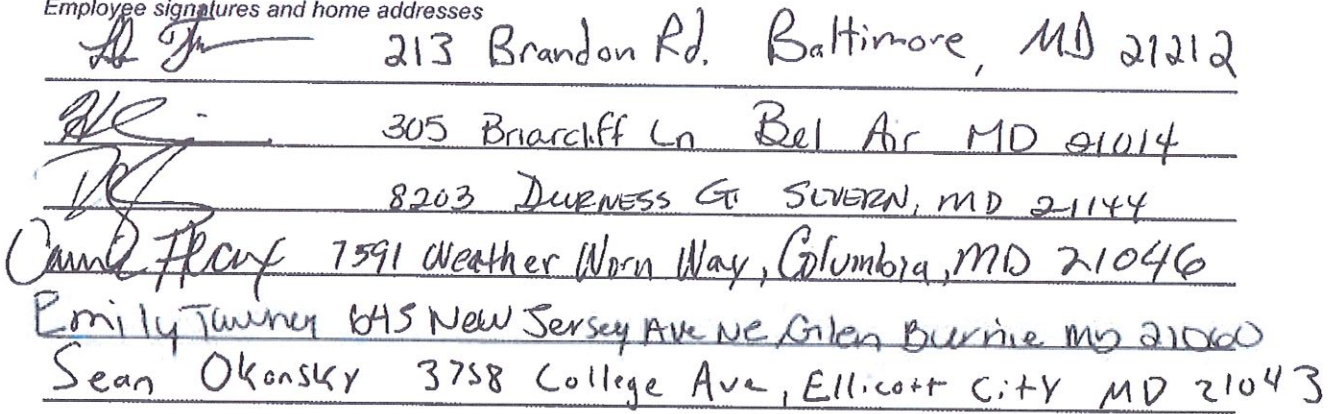 Employee signatures and home addresses
213 Brandon Rd. Baltimore, MD 21212
305 Briarcliff Ln Bel Air MD 21014
8203 DURNESS Ct SEVERN, MD 21144
7591 Weather Worn Way, Columbia, MD 21046
Emily 645 New Jersey Ave NE Glen Burnie MD 21060
Sean Okonsky 3758 College Ave, Ellicott City MD 21043